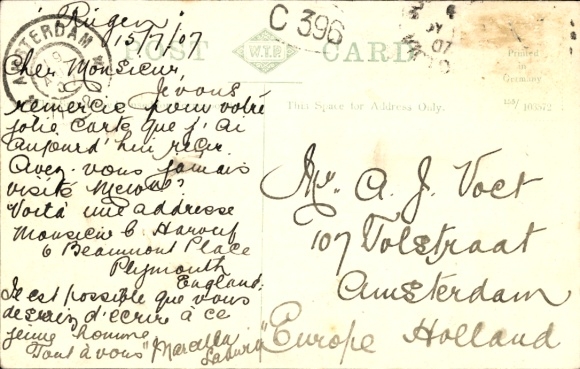 15/7/07
Cher Monsieur,
Je vous
remercie pour votre
jolie carte que j'ai
aujourd'hui reçu.
Avez-vous jamais
visité
Voilà une adresse
Monsieur
6 Beaumont Place
Plymouth
England.
Il est possible que vous
d'écrire à ce
jeune homme
Tout à vous "Marcella
POST CARD
W.T.P.
C 396
AMSTERDAM
07
Printed
in
Germany
This Space for Address Only.
Mr. A. J. Voet
107 Tolstraat
Amsterdam
Europe Holland